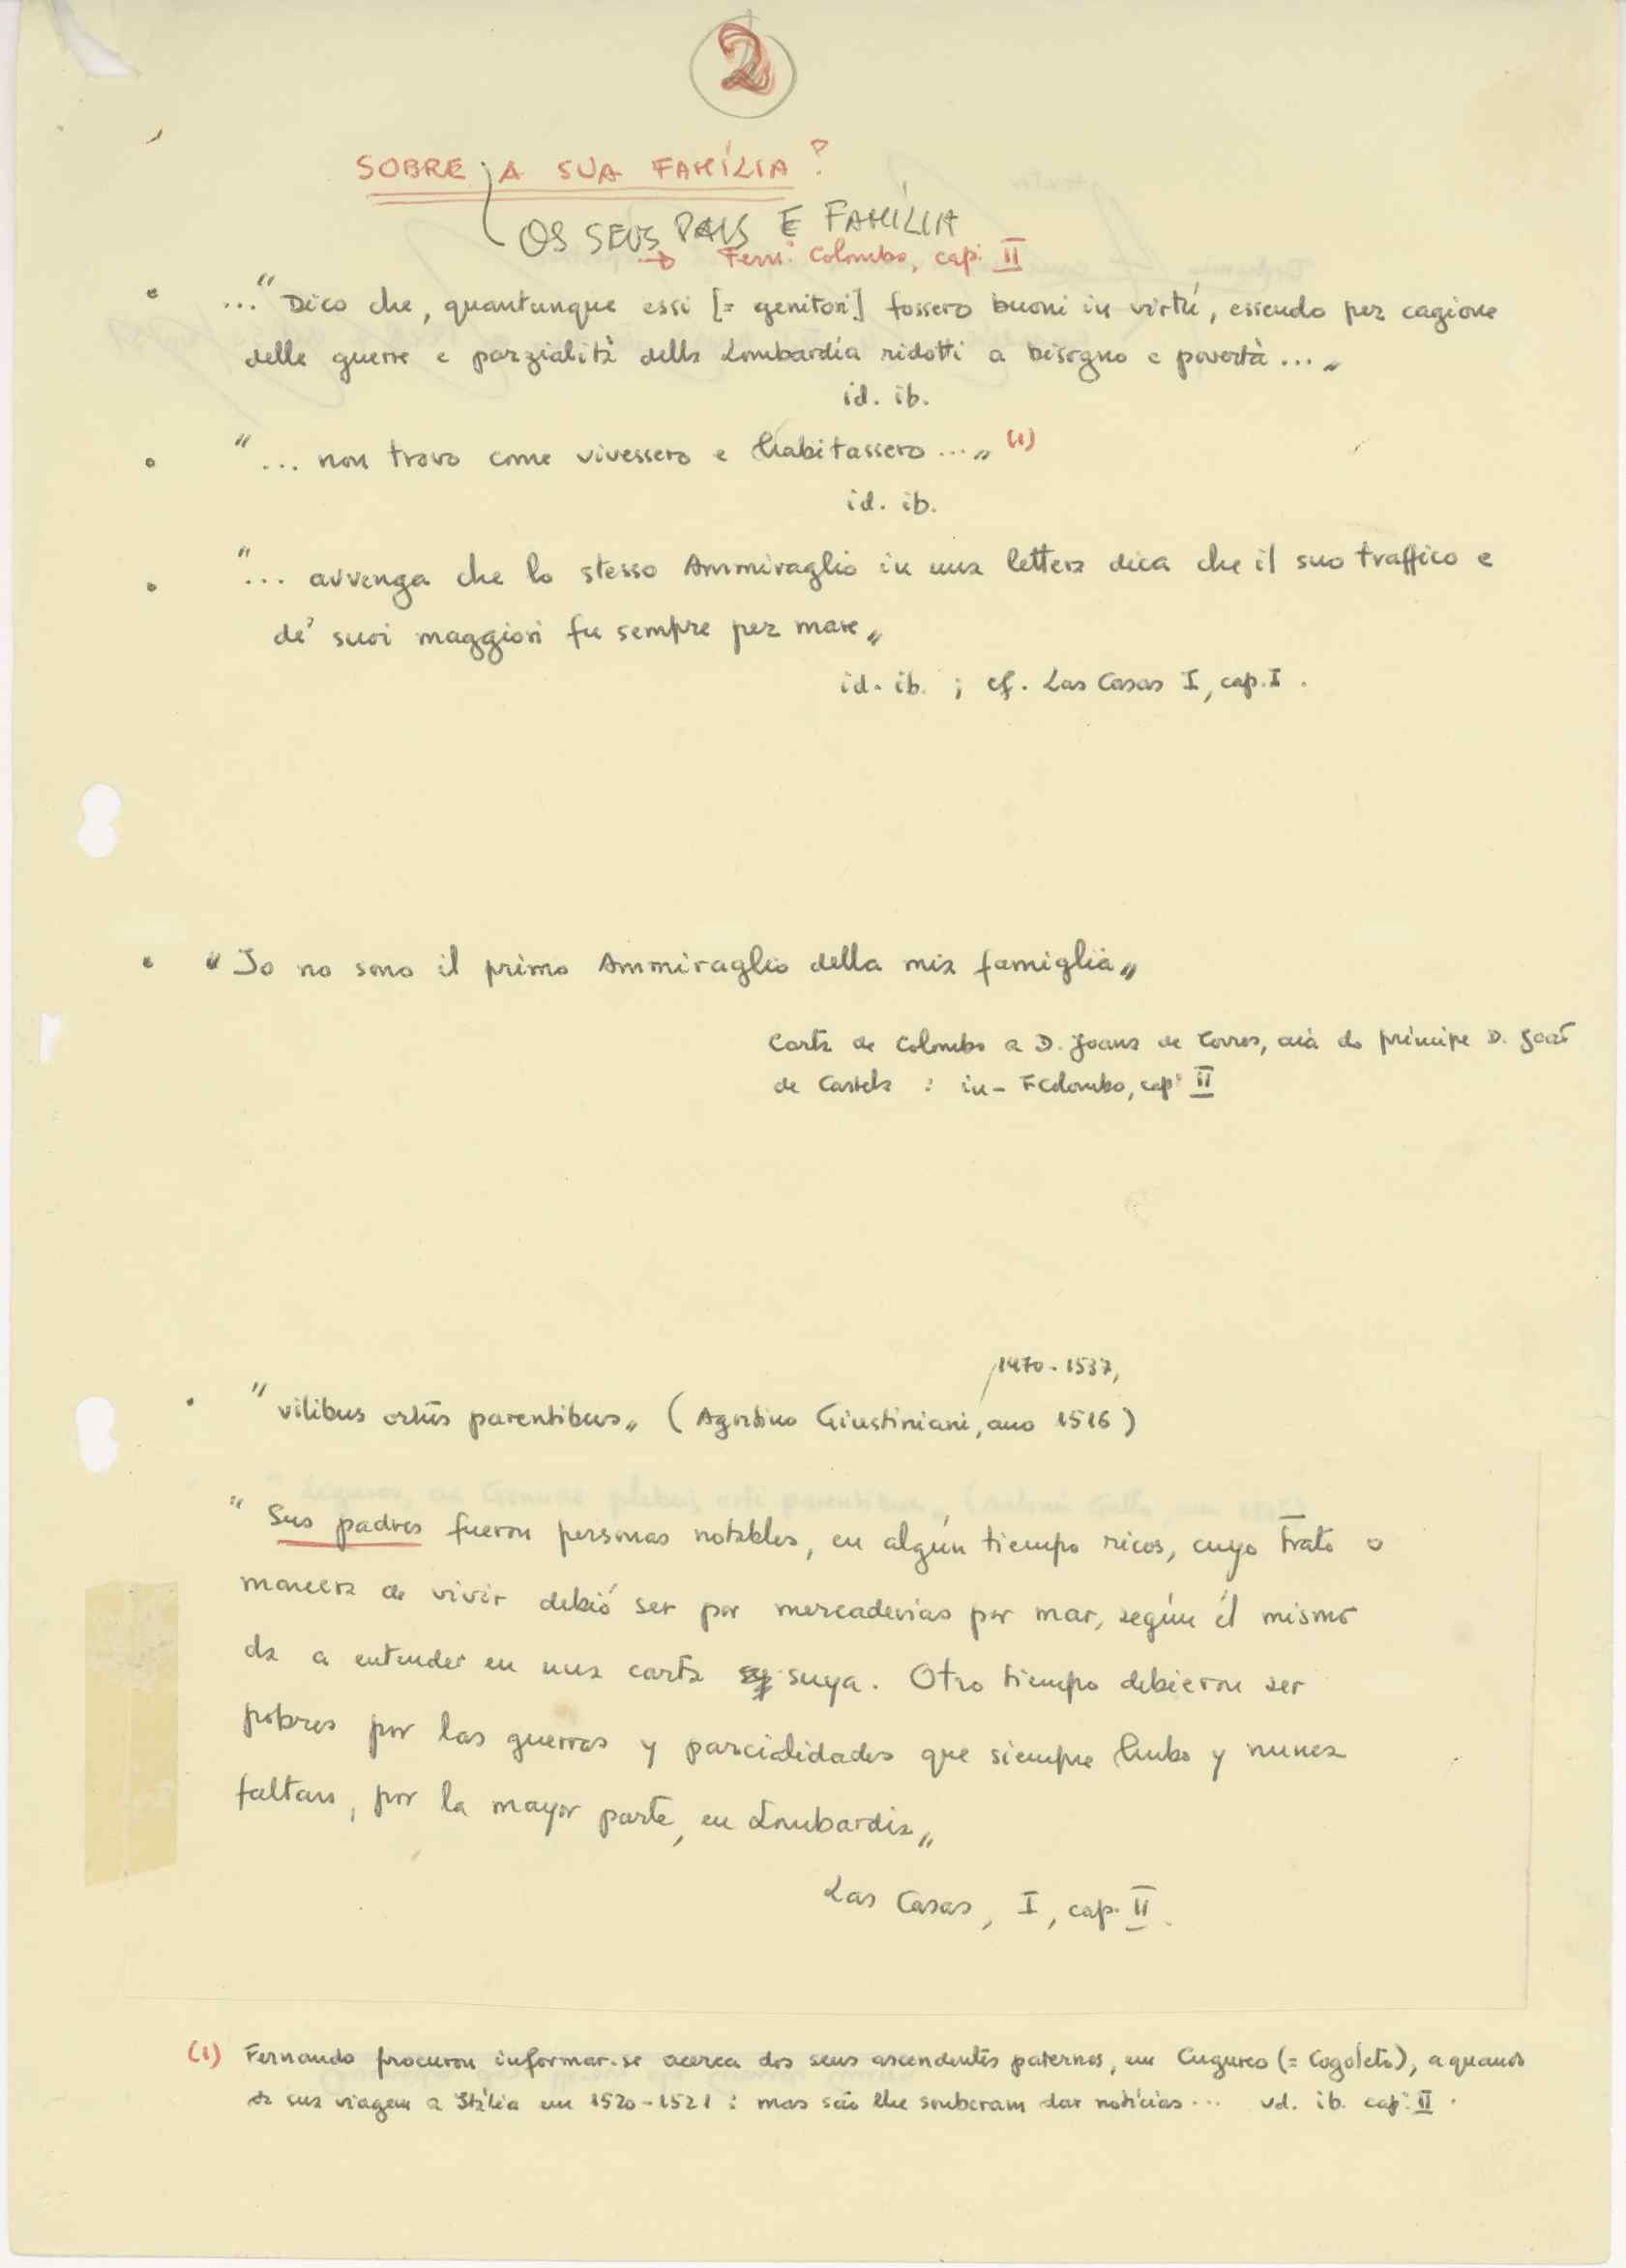 2
SOBRE A SUA FAMÍLIA?
OS SEUS PAIS E FAMÍLIA
→ Fern. Colombo, cap. II
..." Dico che, quantunque essi [= genitori] fossero buoni in virtú, essendo per cagione
delle guerre e parzialità della Lombardía ridotti a bisogno e povertà ..."
id. ib.
"... non trovo come vivessero e habitassero ..." (1)
id. ib.
"... avvenga che lo stesso Ammiraglio in una lettera dica che il suo traffico e
de' suoi maggiori fu sempre per mare"
id. ib. ; cf. Las Casas I, cap. I.
"Io no sono il primo Ammiraglio della mia famiglia"
Carta de Colombo a D. Joana de Torres, aia do príncipe D. João
de Castela : in - F. Colombo, cap. II
1470-1537,
"vilibus ortus parentibus" (Agostino Giustiniani, ano 1516)
"Sus padres fueron personas notables, en algún tiempo ricos, cuyo trato o
manera de vivir debió ser por mercaderias por mar, según él mismo
da a entender en una carta suya. Otro tiempo debieron ser
pobres por las guerras y parcialidades que siempre hubo y nunca
faltan, por la mayor parte, en Lombardia"
Las Casas, I, cap. II.
(1) Fernando procurou informar-se acerca dos seus ascendentes paternos, em Cugureo (= Cogoleto), aquando
da sua viagem a Itália em 1520-1521 : mas não lhe souberam dar notícias ... vd. ib. cap. II.